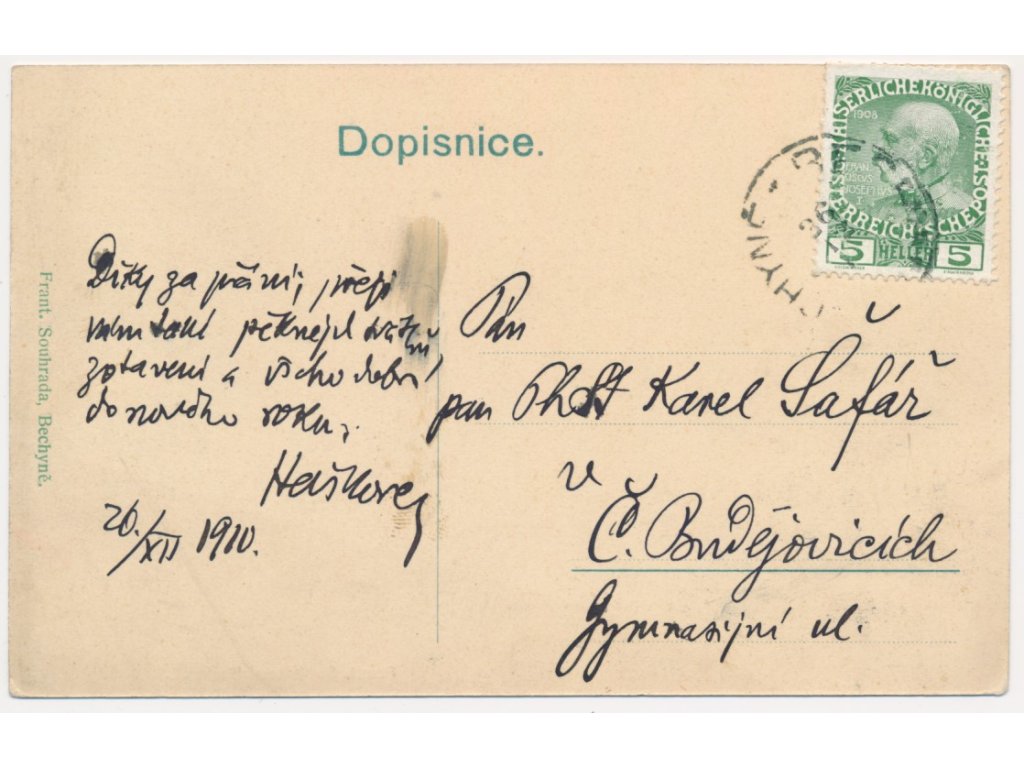 Dopisnice.
Díky za přání, přeji
vám také pěkných svátků
zotavení a všeho dobrého
do nového roku.
Haškovec
26./XII 1910.
Pan
pan PhSt Karel Šafář
v
Č. Budějovicích
Gymnasijní ul.
Frant. Souhrada, Bechyně.
KAISERLICHE KÖNIGLICHE ÖSTERREICHISCHE POST
1908
FRAN
CISCUS
JOSEPHUS
I
5 HELLER 5